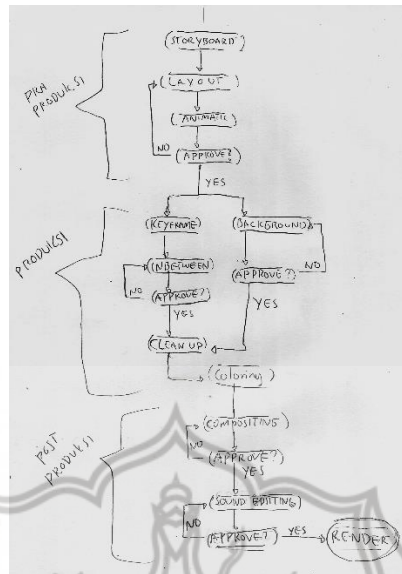 PRA
PRODUKSI
(STORYBOARD)
(LAYOUT)
(ANIMATIC)
NO
(APPROVE?)
YES
PRODUKSI
(KEYFRAME)
(BACKGROUND)
(INBETWEEN)
NO
(APPROVE?)
YES
(APPROVE?)
NO
YES
(CLEAN UP)
(Coloring)
POST
PRODUKSI
(COMPOSITING)
NO
(APPROVE?)
YES
(SOUND EDITING)
NO
(APPROVE?)
YES
(RENDER)